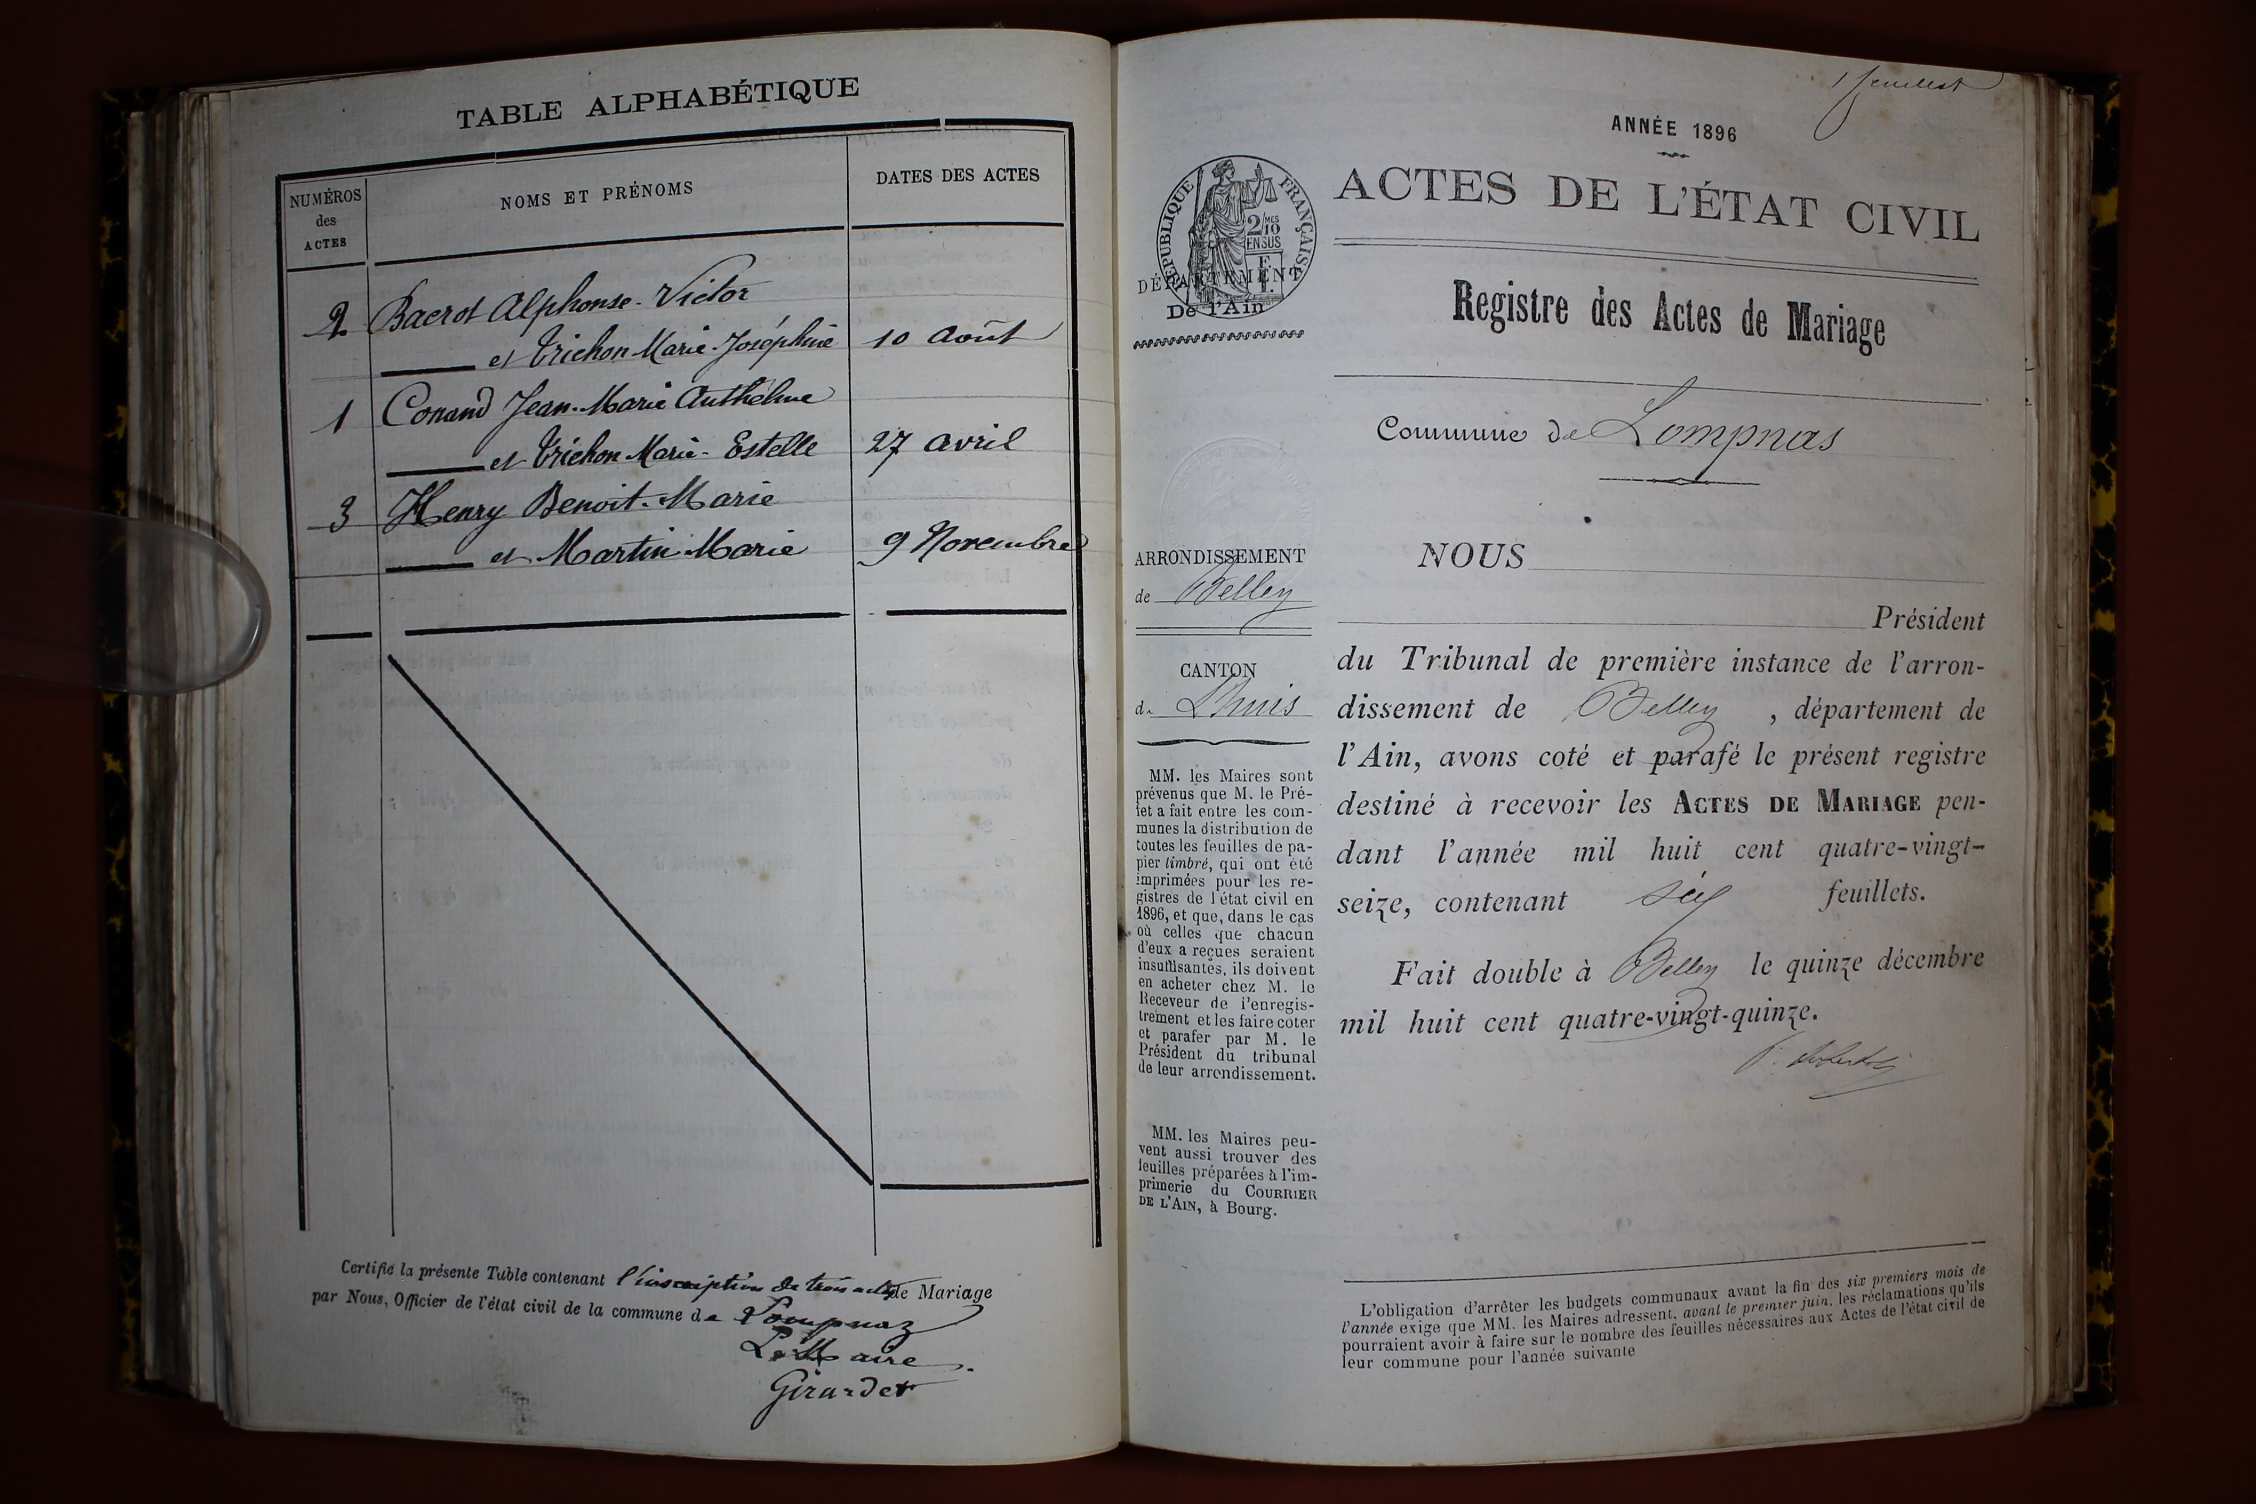 TABLE ALPHABÉTIQUE
NUMÉROS
des
ACTES
NOMS ET PRÉNOMS
DATES DES ACTES
2 Bacrot Alphonse-Victor
et Trichon Marie-Joséphine 10 Août
1 Conand Jean-Marie Anthelme
et Trichon Marie-Estelle 27 avril
3 Henry Benoit-Marie
et Martin Marie 9 Novembre
Certifié la présente Table contenant l'inscription de trois actes de Mariage
par Nous, Officier de l'état civil de la commune de Lompnaz
Le Maire
Girardet
1 feuillet
ANNÉE 1896
ACTES DE L'ÉTAT CIVIL
RÉPUBLIQUE FRANÇAISE
2/10 MES
EN SUS
DÉPARTEMENT
De l'Ain
Registre des Actes de Mariage
Commune de Lompnas
ARRONDISSEMENT
de Belley
CANTON
de Lhuis
MM. les Maires sont
prévenus que M. le Pré-
fet a fait entre les com-
munes la distribution de
toutes les feuilles de pa-
pier timbré, qui ont été
imprimées pour les re-
gistres de l'état civil en
1896, et que, dans le cas
où celles que chacun
d'eux a reçues seraient
insuffisantes, ils doivent
en acheter chez M. le
Receveur de l'enregis-
trement et les faire coter
et parafer par M. le
Président du tribunal
de leur arrondissement.
MM. les Maires peu-
vent aussi trouver des
feuilles préparées à l'im-
primerie du COURRIER
DE L'AIN, à Bourg.
NOUS
Président
du Tribunal de première instance de l'arron-
dissement de Belley, département de
l'Ain, avons coté et parafé le présent registre
destiné à recevoir les ACTES DE MARIAGE pen-
dant l'année mil huit cent quatre-vingt-
seize, contenant six feuillets.
Fait double à Belley le quinze décembre
mil huit cent quatre-vingt-quinze.
L'obligation d'arrêter les budgets communaux avant la fin des six premiers mois de
l'année exige que MM. les Maires adressent, avant le premier juin, les réclamations qu'ils
pourraient avoir à faire sur le nombre des feuilles nécessaires aux Actes de l'état civil de
leur commune pour l'année suivante